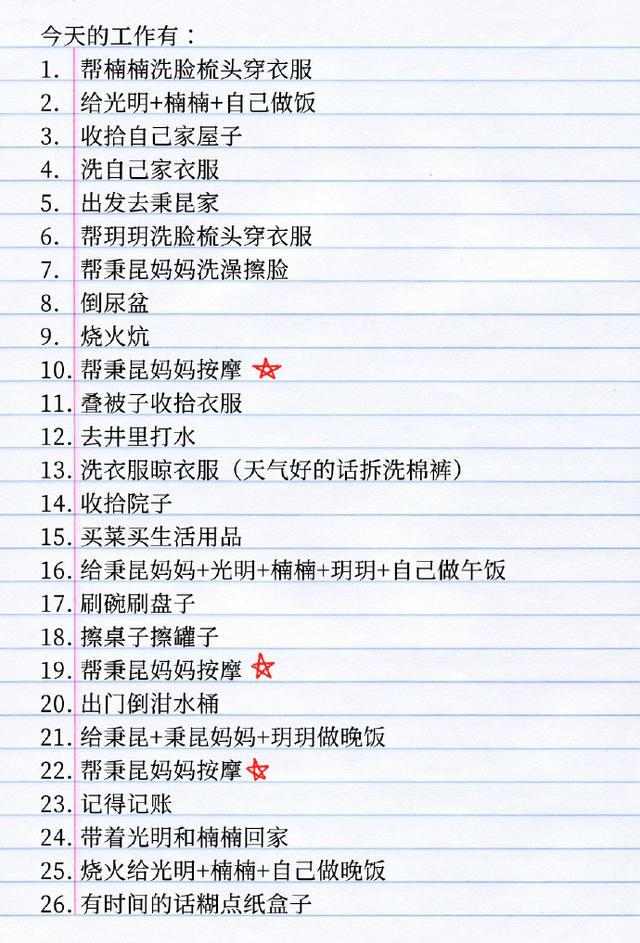 今天的工作有：
1. 帮楠楠洗脸梳头穿衣服
2. 给光明+楠楠+自己做饭
3. 收拾自己家屋子
4. 洗自己家衣服
5. 出发去秉昆家
6. 帮玥玥洗脸梳头穿衣服
7. 帮秉昆妈妈洗澡擦脸
8. 倒尿盆
9. 烧火炕
10. 帮秉昆妈妈按摩
11. 叠被子收拾衣服
12. 去井里打水
13. 洗衣服晾衣服（天气好的话拆洗棉裤）
14. 收拾院子
15. 买菜买生活用品
16. 给秉昆妈妈+光明+楠楠+玥玥+自己做午饭
17. 刷碗刷盘子
18. 擦桌子擦罐子
19. 帮秉昆妈妈按摩
20. 出门倒泔水桶
21. 给秉昆+秉昆妈妈+玥玥做晚饭
22. 帮秉昆妈妈按摩
23. 记得记账
24. 带着光明和楠楠回家
25. 烧火给光明+楠楠+自己做晚饭
26. 有时间的话糊点纸盒子